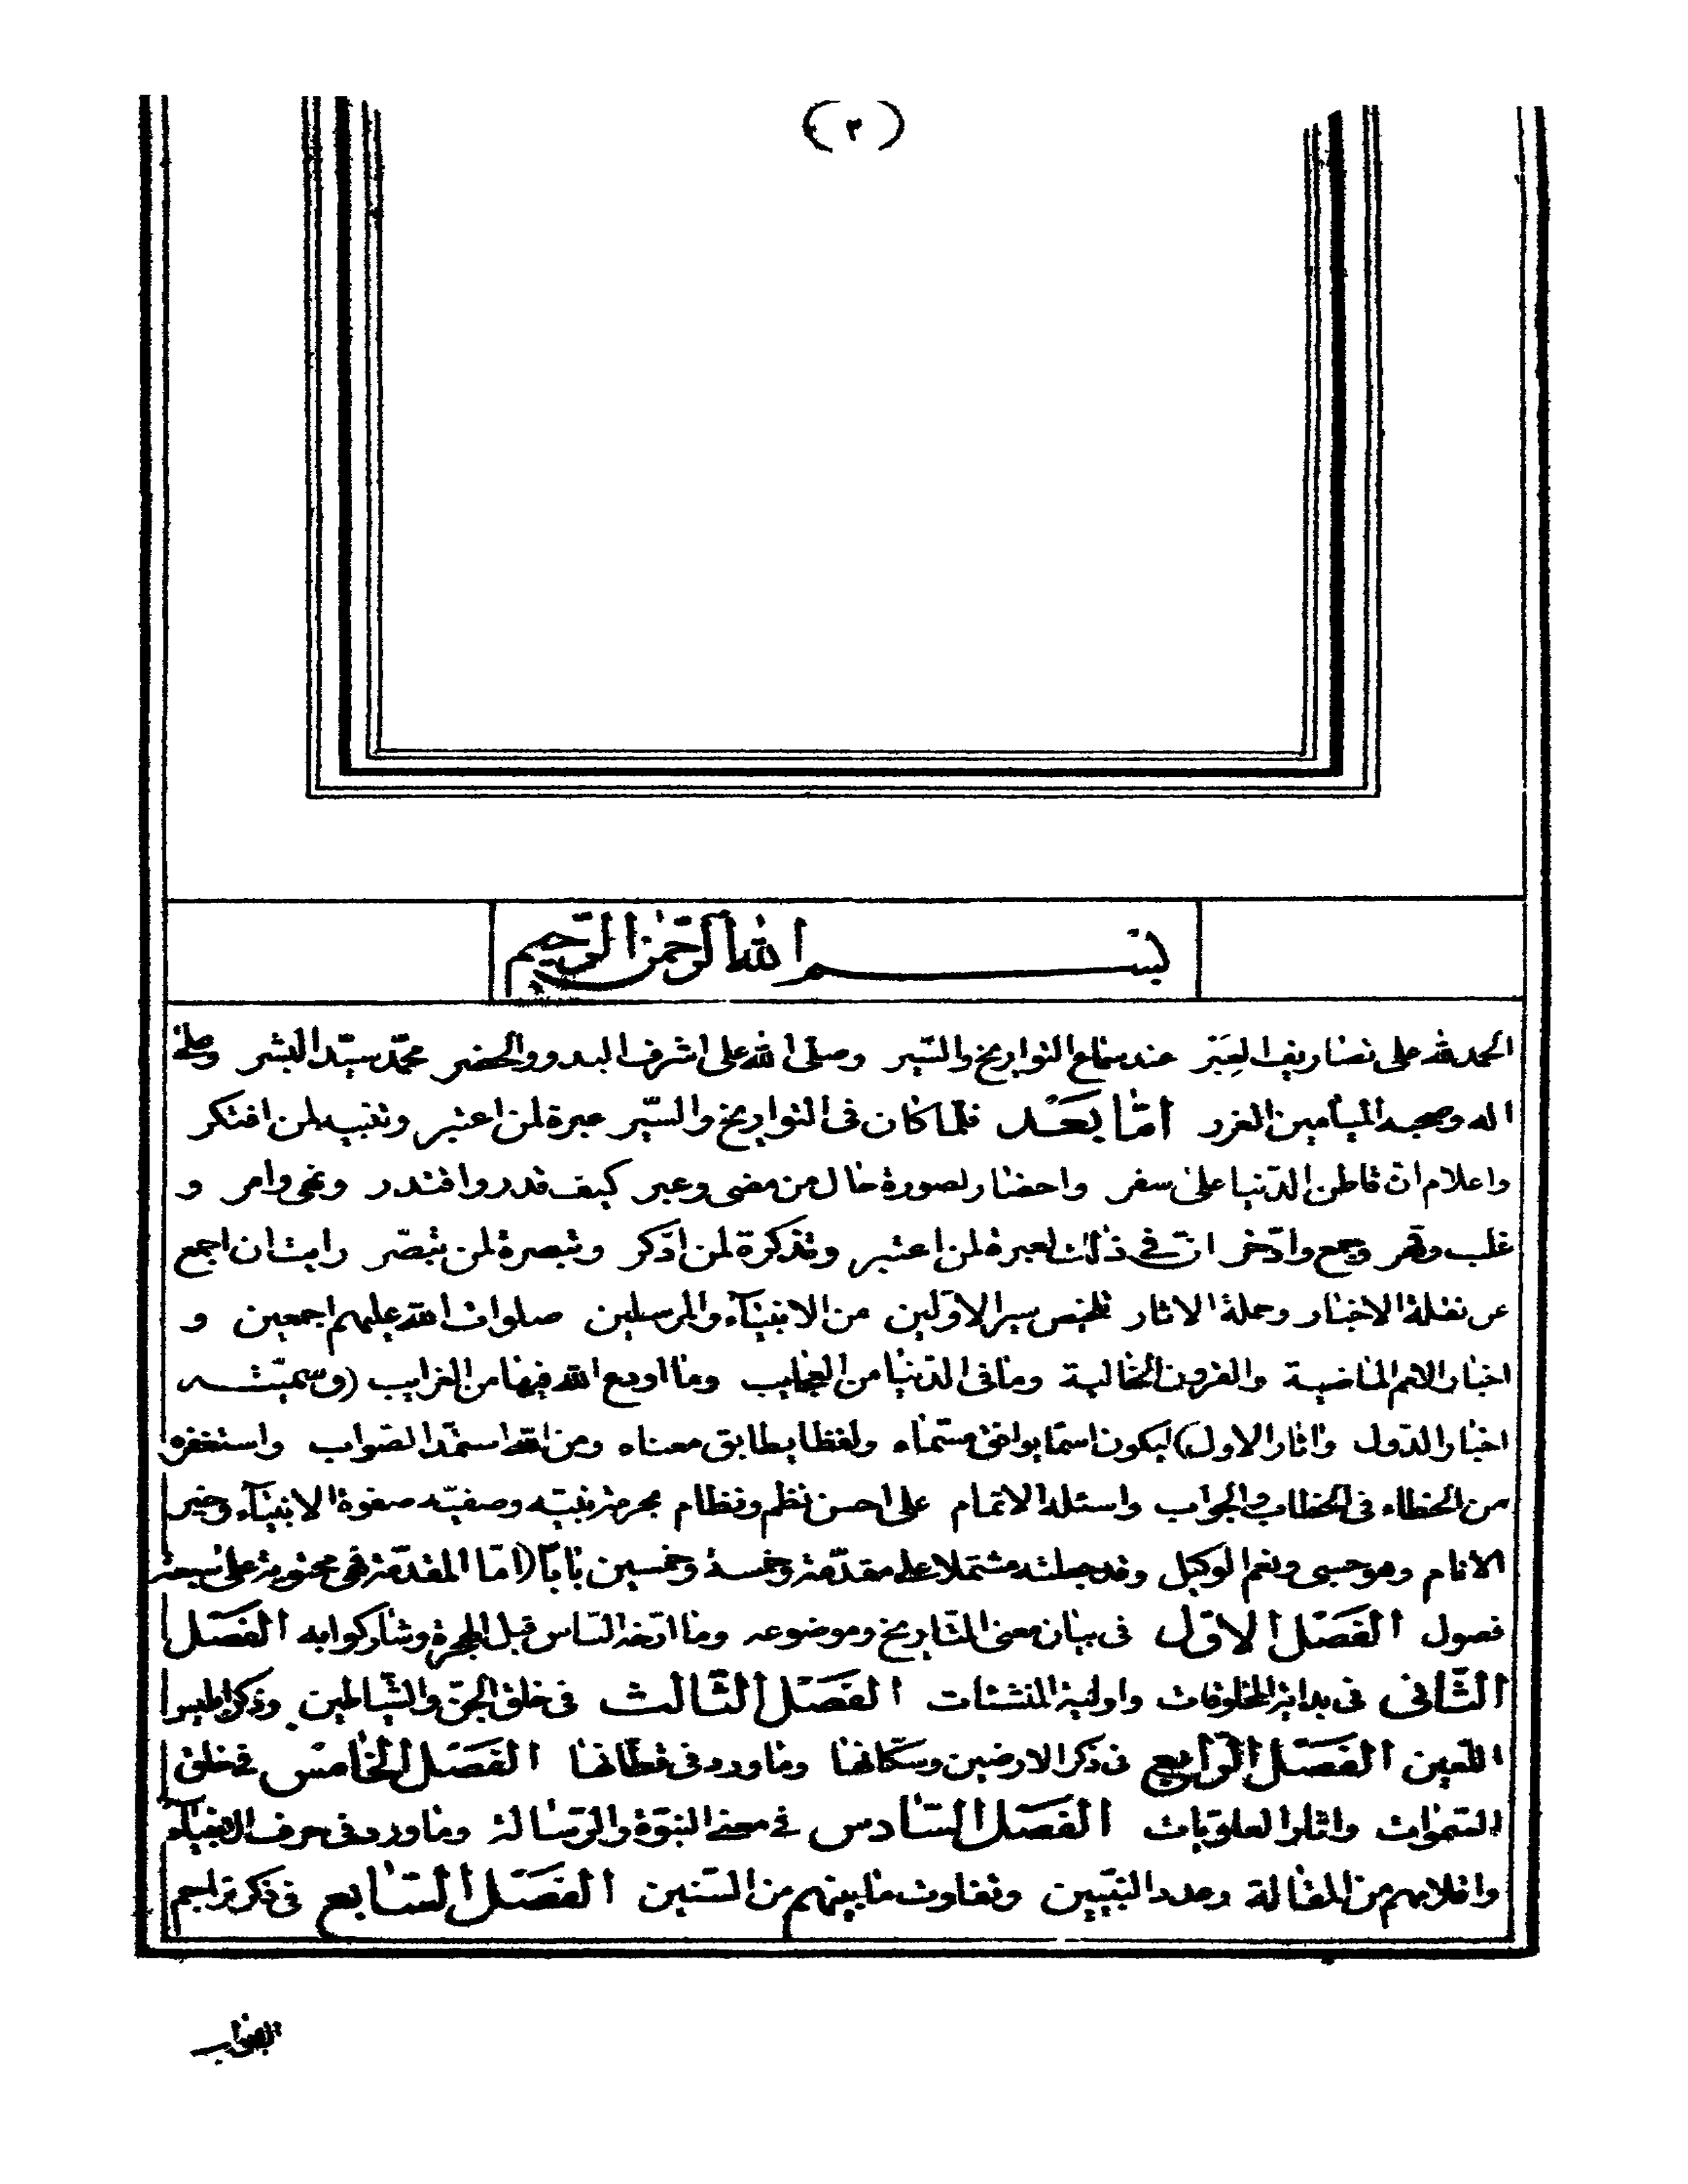 (٢)
بسم الله الرحمن الرحيم
الحمد لله على تصاريف العِبَر عند سماع التواريخ والسّير وصلى الله على اشرف البدو والحضر محمّد سيّد البشر وعلى
اله وصحبه الميامين الغرر امّا بَعْد فلما كان فى التواريخ والسّير عبرة لمن اعتبر وتنبيه لمن افتكر
واعلام انّ قاطن الدّنيا على سفر واحضار لصورة حال من مضى وعبر كيف قدر واقتدر ونهى وامر و
غلب وقهر وجمع وادّخر انّ فى ذلك لعبرة لمن اعتبر وتذكرة لمن اذّكر وتبصرة لمن تبصّر رايت ان اجمع
عن نقلة الاخبار وحملة الاثار تلخيص سير الاوّلين من الانبيآء والمرسلين صلوات الله عليهم اجمعين و
اخبار الامم الماضية والقرون الخالية وما فى الدّنيا من العجايب وما اودع الله فيها من الغرايب (وسميّته
اخبار الدّول واثار الاول) ليكون اسمًا يوافق مسمّاه ولفظا يطابق معناه ومن الله استمدّ الصّواب واستغفره
من الخطاء فى الخطاب والجواب واسئله الاتمام على احسن نظم ونظام بحرمة نبيّه وصفيّه صفوة الانبيآء وخير
الانام وهو حسبى ونعم الوكيل وقد جعلته مشتملا على مقدّمة وخمسة وخمسين بابًا (امّا المقدّمة فهى محتوية على سبعة
فصول الفَصْل الاوّل فى بيان معنى التّاريخ وموضوعه وما ارّخه النّاس قبل الهجرة وشاركوا به الفَصْل
الثّانى فى بداية المخلوقات واولية المنشئات الفَصْل الثّالث فى خلق الجنّ والشّياطين وذكر ابليس
اللّعين الفَصْل الرّابع فى ذكر الارضين وسكّانها وما ورد فى قطّانها الفَصْل الخامس فى خلق
السّموات واثار العلويّات الفَصْل السّادس فى معنى النبوّة والرّسالة وما ورد فى حرف الانبيآء
واقلامهم من المقالة وعدد النّبيّين وتفاوت ما بينهم من السّنين الفَصْل السّابع فى ذكر تراجم